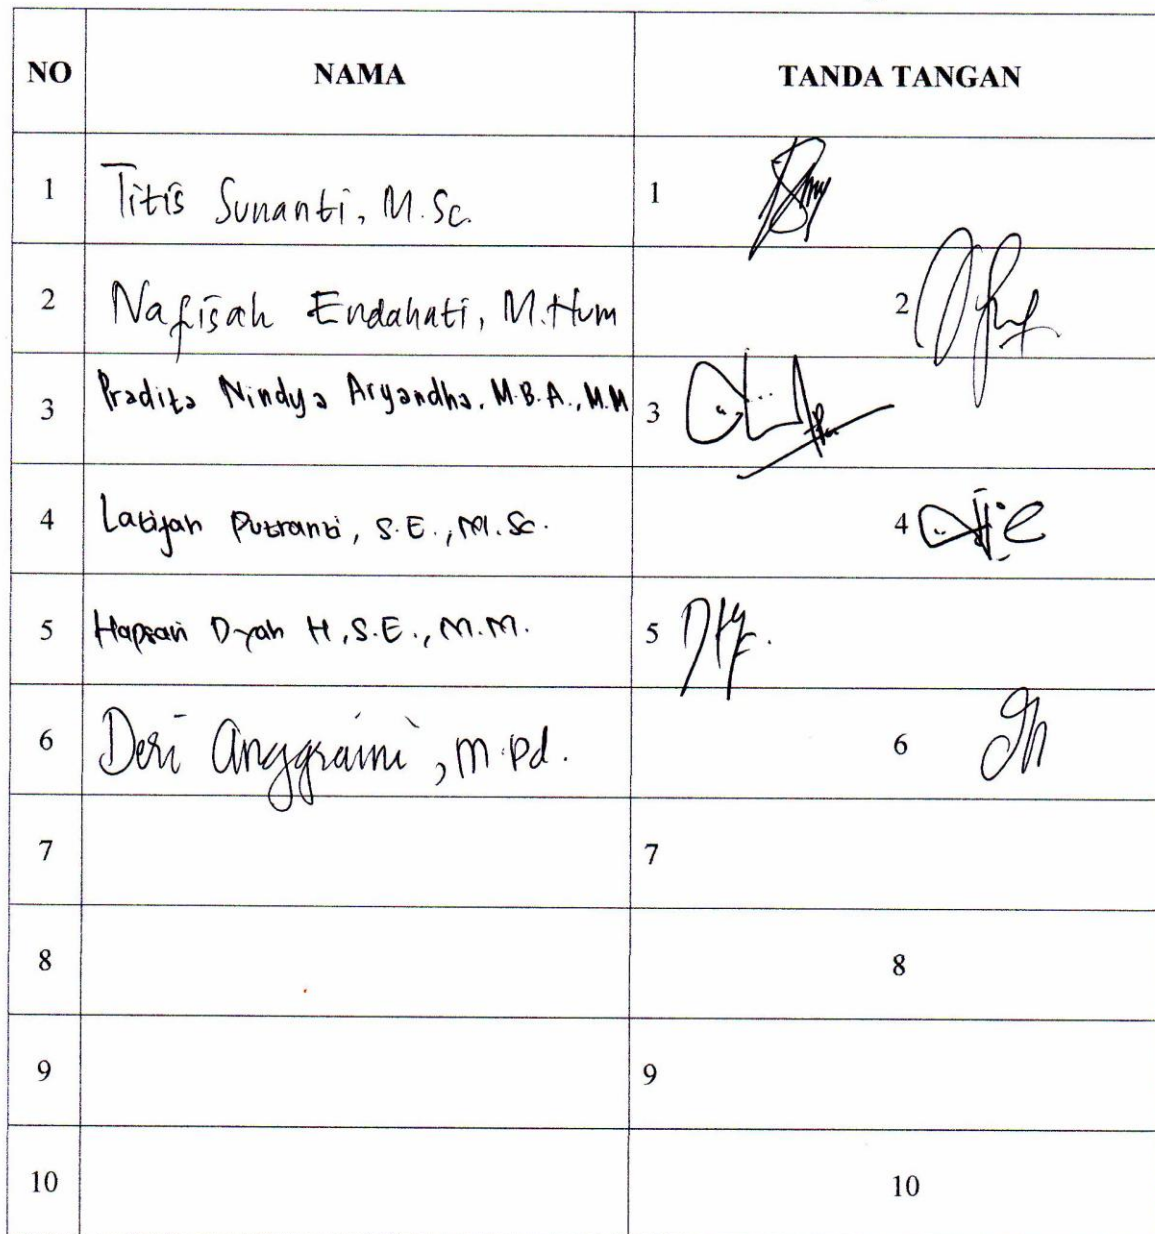 NO NAMA TANDA TANGAN
1 Titis Sunanti, M.Sc. 1
2 Nafisah Endahati, M.Hum 2
3 Pradita Nindya Aryandha, M.B.A., M.M 3
4 Latifah Putranti, S.E., M.Sc. 4
5 Hapsari Dyah H, S.E., M.M. 5
6 Deri Anggraini, M.Pd. 6
7 7
8 8
9 9
10 10